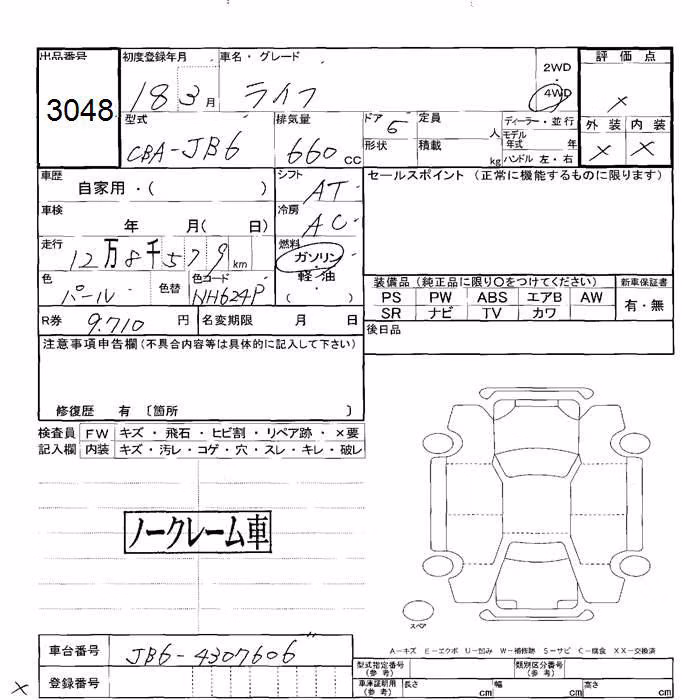 出品番号 初度登録年月 車名・グレード 2WD ・ 4WD 評価点
3048 18 3月 ライフ ×
型式 排気量 ドア 定員 ディーラー・並行 外装 内装
CBA-JB6 660cc 5 人 モデル年式 年 × ×
形状 積載 kg ハンドル 左・右
車歴 自家用・( ) シフト AT セールスポイント (正常に機能するものに限ります)
車検 年 月( 日) 冷房 AC
走行 12万8千579km 燃料 ガソリン
軽・油
色 パール 色替 色コード NH624P ( ) 装備品 (純正品に限り〇をつけてください) 新車保証書
PS PW ABS エアB AW 有・無
SR ナビ TV カワ
R券 9.710 円 名変期限 月 日 後日品
注意事項申告欄 (不具合内容等は具体的に記入して下さい)
修復歴 有 〔箇所 〕
検査員 FW キズ・飛石・ヒビ割・リペア跡・×要
記入欄 内装 キズ・汚レ・コゲ・穴・スレ・キレ・破レ
ノークレーム車
スペア
A-キズ E-エクボ U-凹み W-補修跡 S-サビ C-腐食 XX-交換済
車台番号 JB6-4307606
型式指定番号 (参考) 類別区分番号 (参考)
× 登録番号 車庫証明用 (参考) 長さ cm 幅 cm 高さ cm